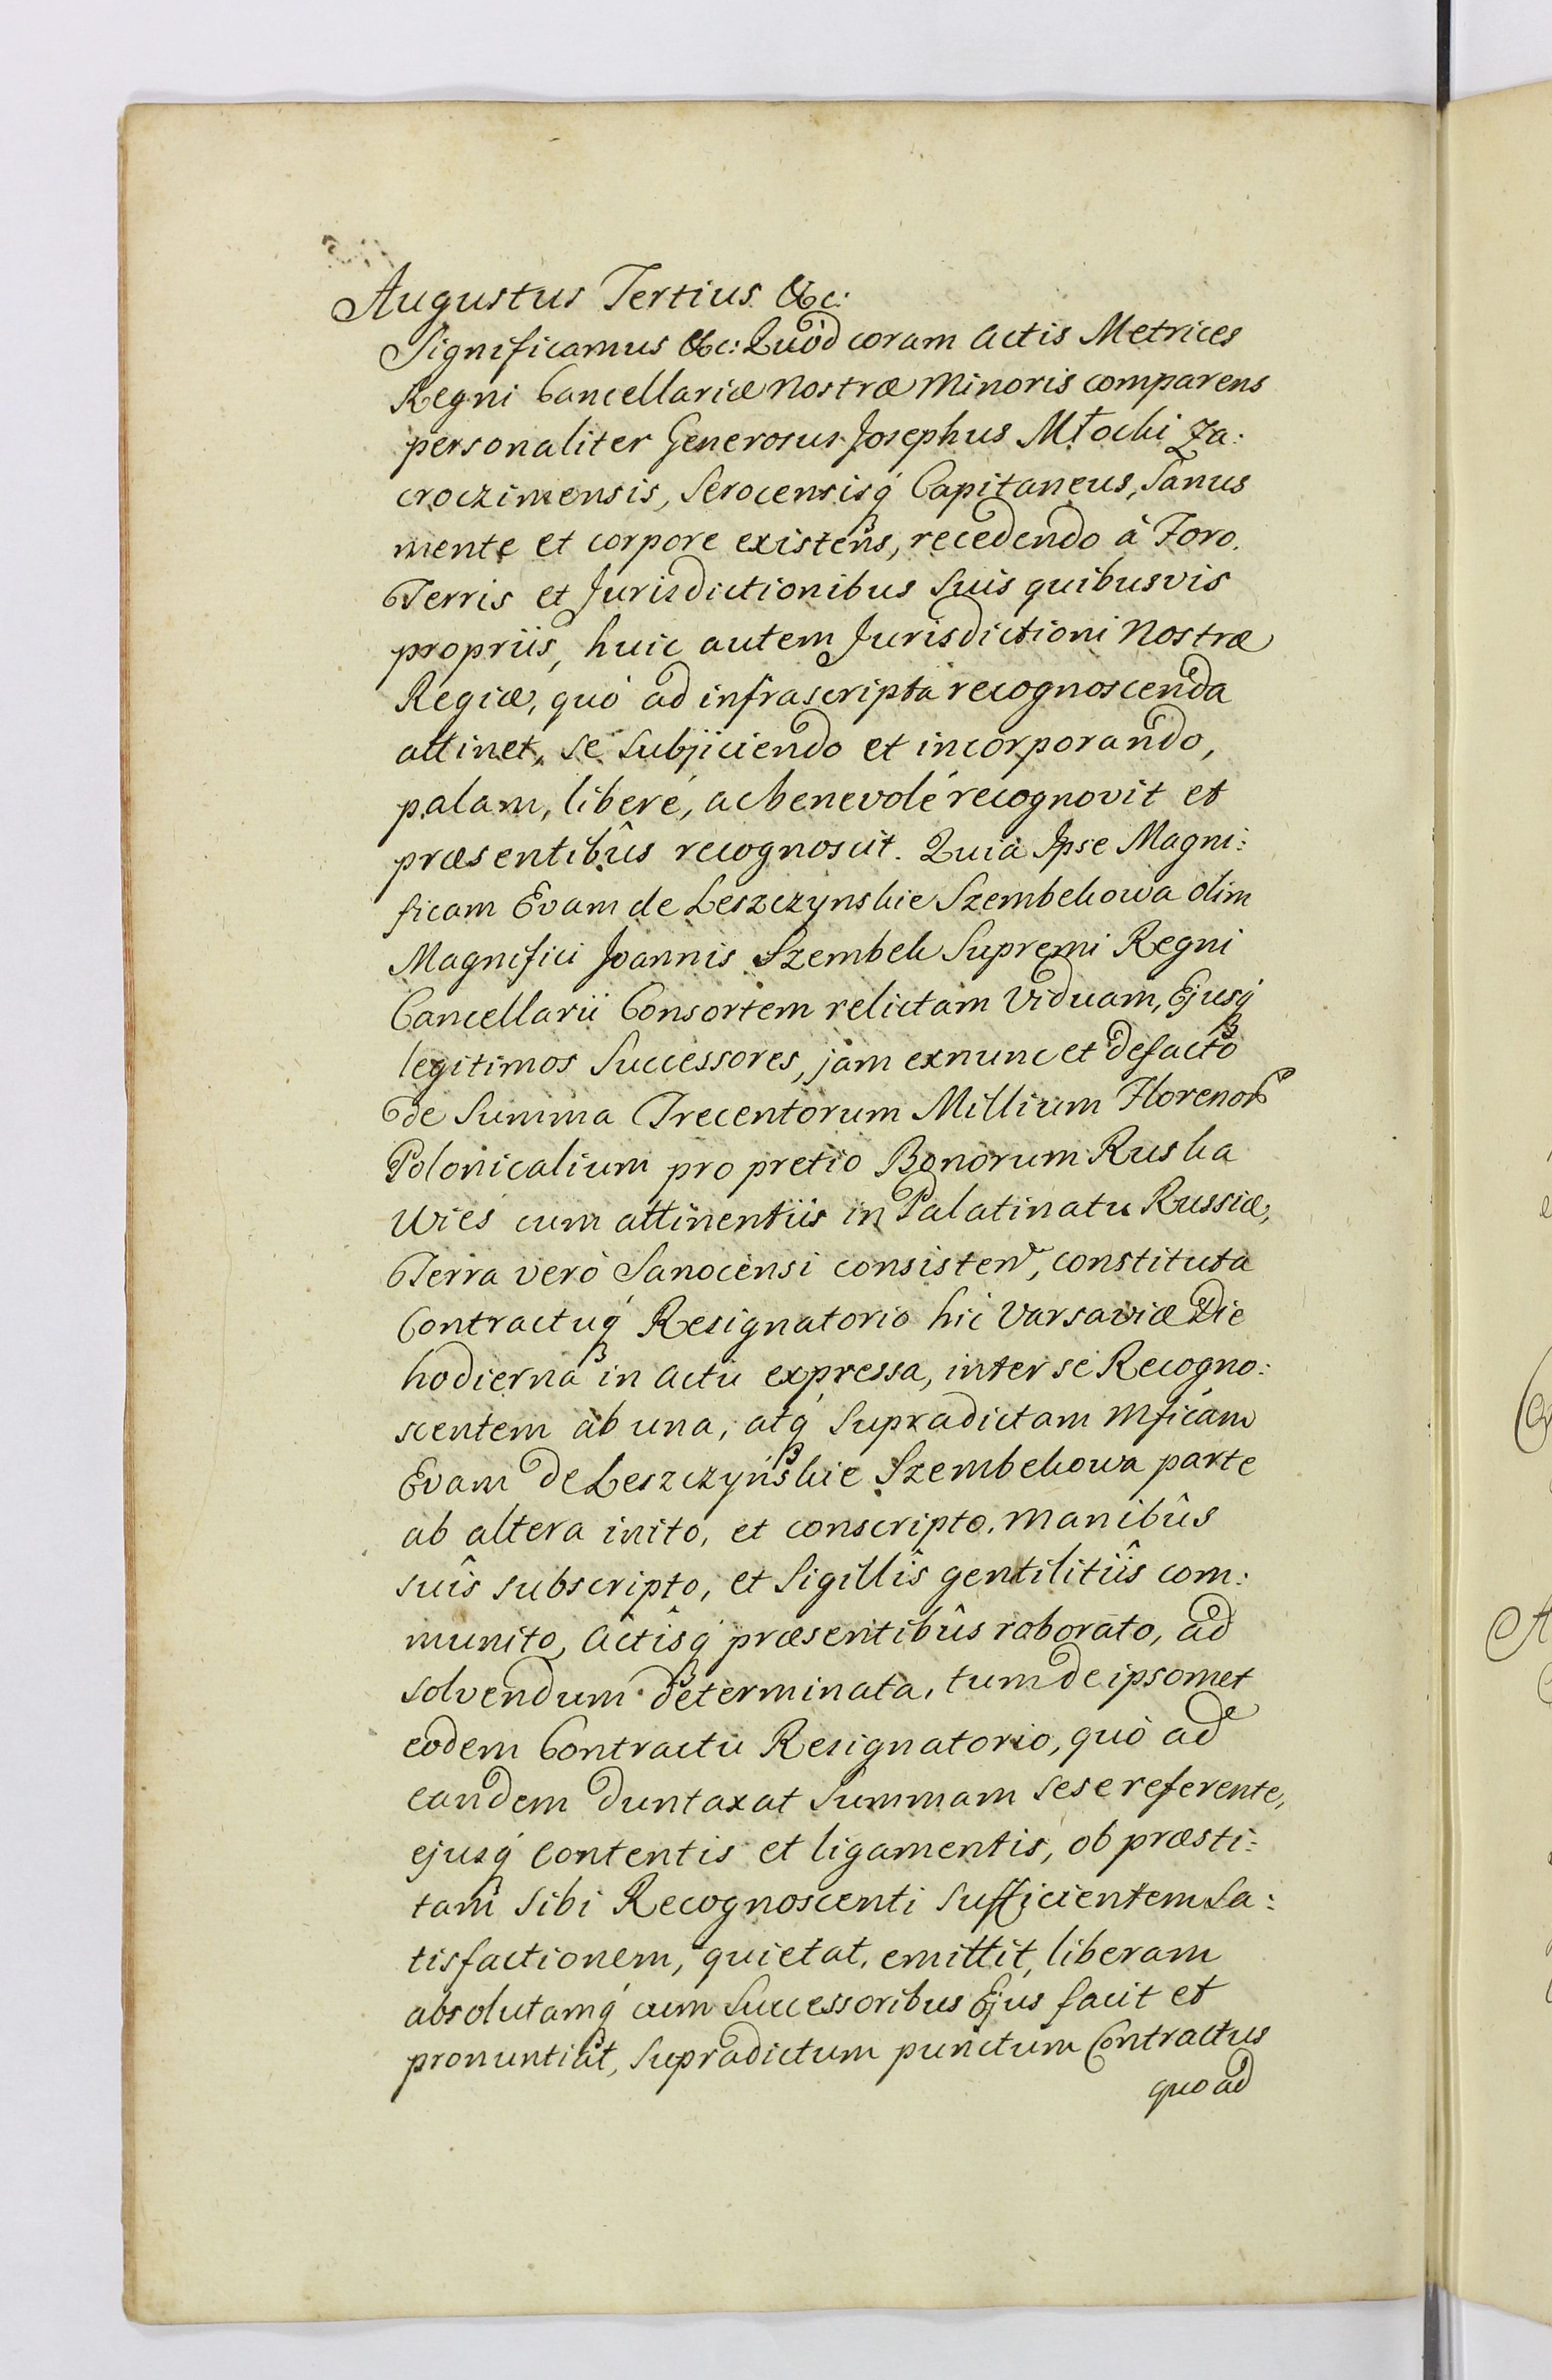 Augustus Tertius &c:
Significamus &c: Quòd coram Actis Metrices
Regni Cancellariæ Nostræ Minoris comparens
personaliter Generosus Josephus Młocki Za:
croczimensis, Serocensisq́ Capitaneus, Sanus
mente et corpore existens, recedendo à Foro.
Terris et Jurisdictionibus Suis quibusvis
propriis, huic autem Jurisdictioni Nostræ
Regiæ, quò ad infrascripta recognoscenda
attinet, se subjiciendo et incorporando,
palam, liberé, ac benevolé recognovit et
præsentibûs recognoscit. Quia Ipse Magni:
ficam Evam de Leszczynskie Szembekowa olim
Magnifici Joannis Szembek Supremi Regni
Cancellarii Consortem relictam Viduam, Ejusq́
legitimos Successores, jam exnunc et defacto
de Summa Trecentorum Millium Florenoꝝ
Polonicalium pro pretio Bonorum Ruska
Wieś cum attinentiis in Palatinatu Russiæ,
Terra verò Sanocensi consisteñ, constituta
Contractuq́ Resignatorio hic Varsaviæ Die
hodierna in Actu expressa, inter se Recogno:
scentem ab una, atq́ Supradictam Mficam
Evam de Leszczyńskie Szembekowa parte
ab altera inito, et conscripto, manibûs
suîs subscripto, et Sigillîs gentilitiîs com:
munito, Actîsq́ præsentibûs roborato, ad
solvendum determinata, tum de ipsomet
eodem Contractu Resignatorio, quò ad
eandem duntaxat Summam sese referente,
ejusq́ Contentis et ligamentis, ob præsti:
tam Sibi Recognoscenti Sufficientem Sa:
tisfactionem, quietat, emittit, liberam
absolutamq́ cum Successoribus Ejus facit et
pronuntiat, Supradictum punctum Contractus
quo ad